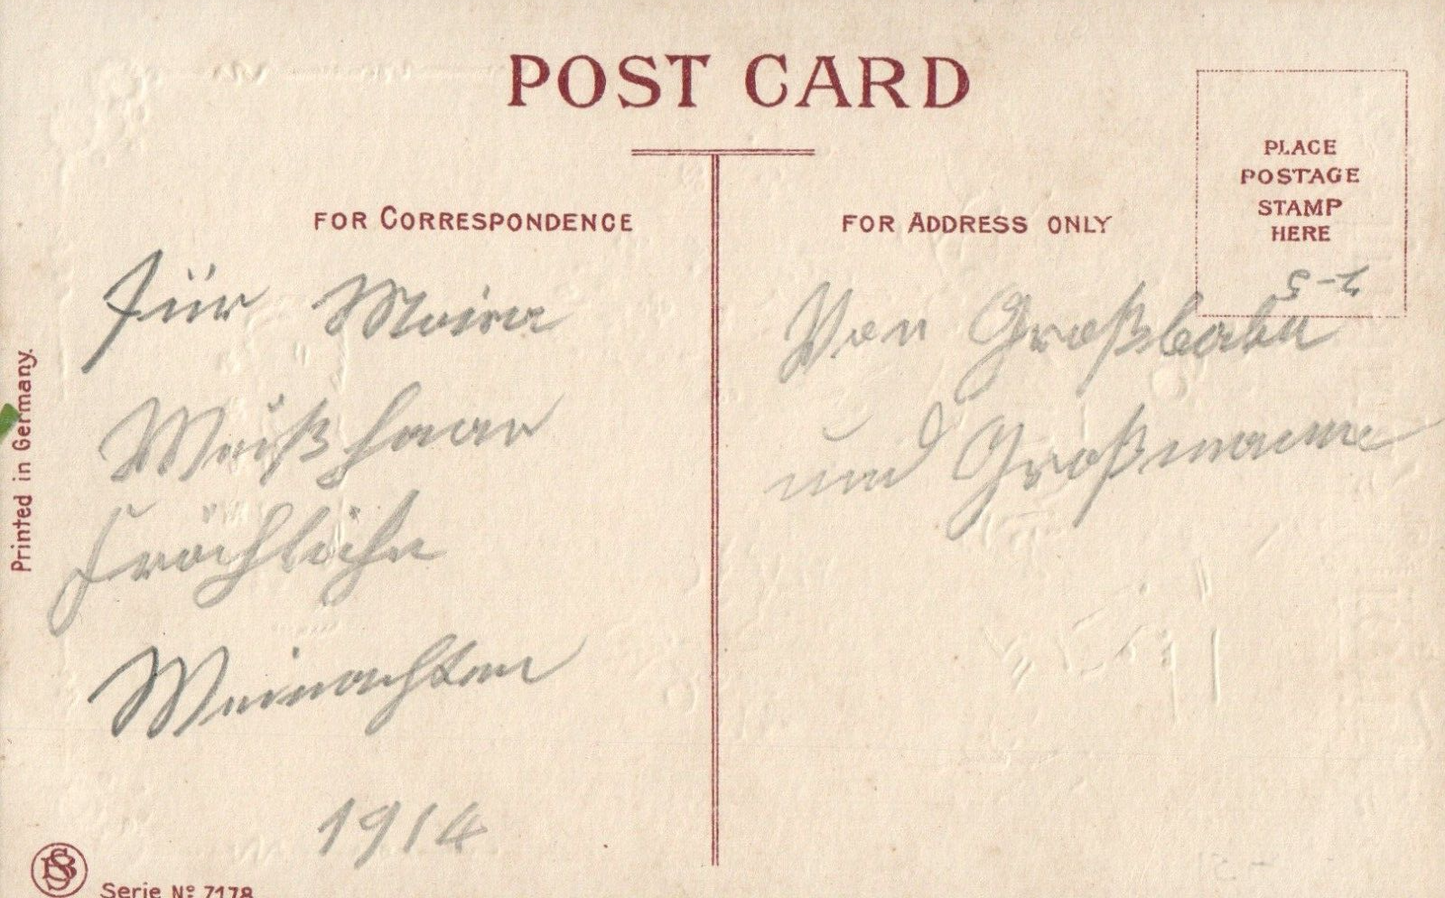 POST CARD
FOR CORRESPONDENCE
FOR ADDRESS ONLY
PLACE
POSTAGE
STAMP
HERE
Für
Weißhaar
Fröhliche
Weinachten
1914
Von Großbaba
und Großmama
Printed in Germany.
Serie No 7178